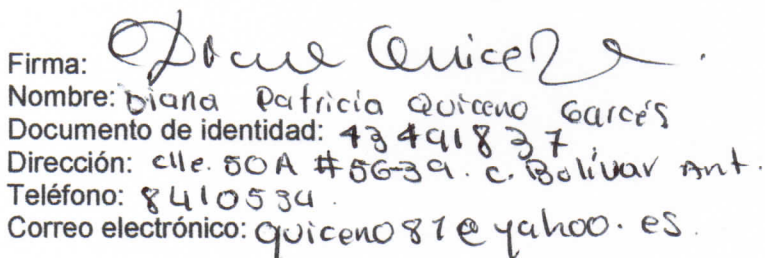 Firma: Diana Quiceno
Nombre: Diana Patricia Quiceno Garcés
Documento de identidad: 43491837
Dirección: clle. 50A #56-39. c. Bolívar Ant.
Teléfono: 8410534.
Correo electrónico: quiceno81@yahoo.es